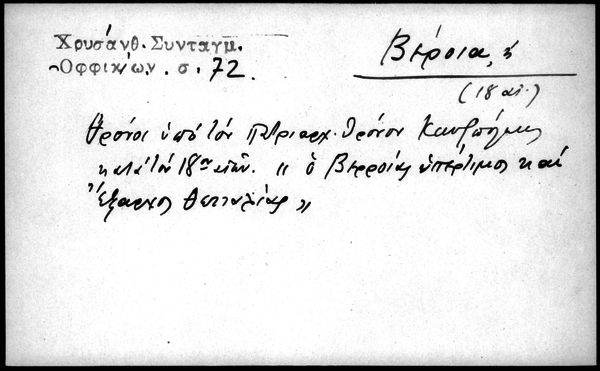 Χρυσάνθ. Συνταγμ.
Ὀφφικίων. σ. 72.
Βέροια, ἡ
(18 αἰ.)
Θρόνοι ὑπὸ τὸν Πατριαρχ. Θρόνον Κωνσπόλεως
κατὰ τὸν 18ον αἰῶν. " ὁ Βερροίας ὑπέρτιμος καὶ
Ἔξαρχος Θετταλίας "